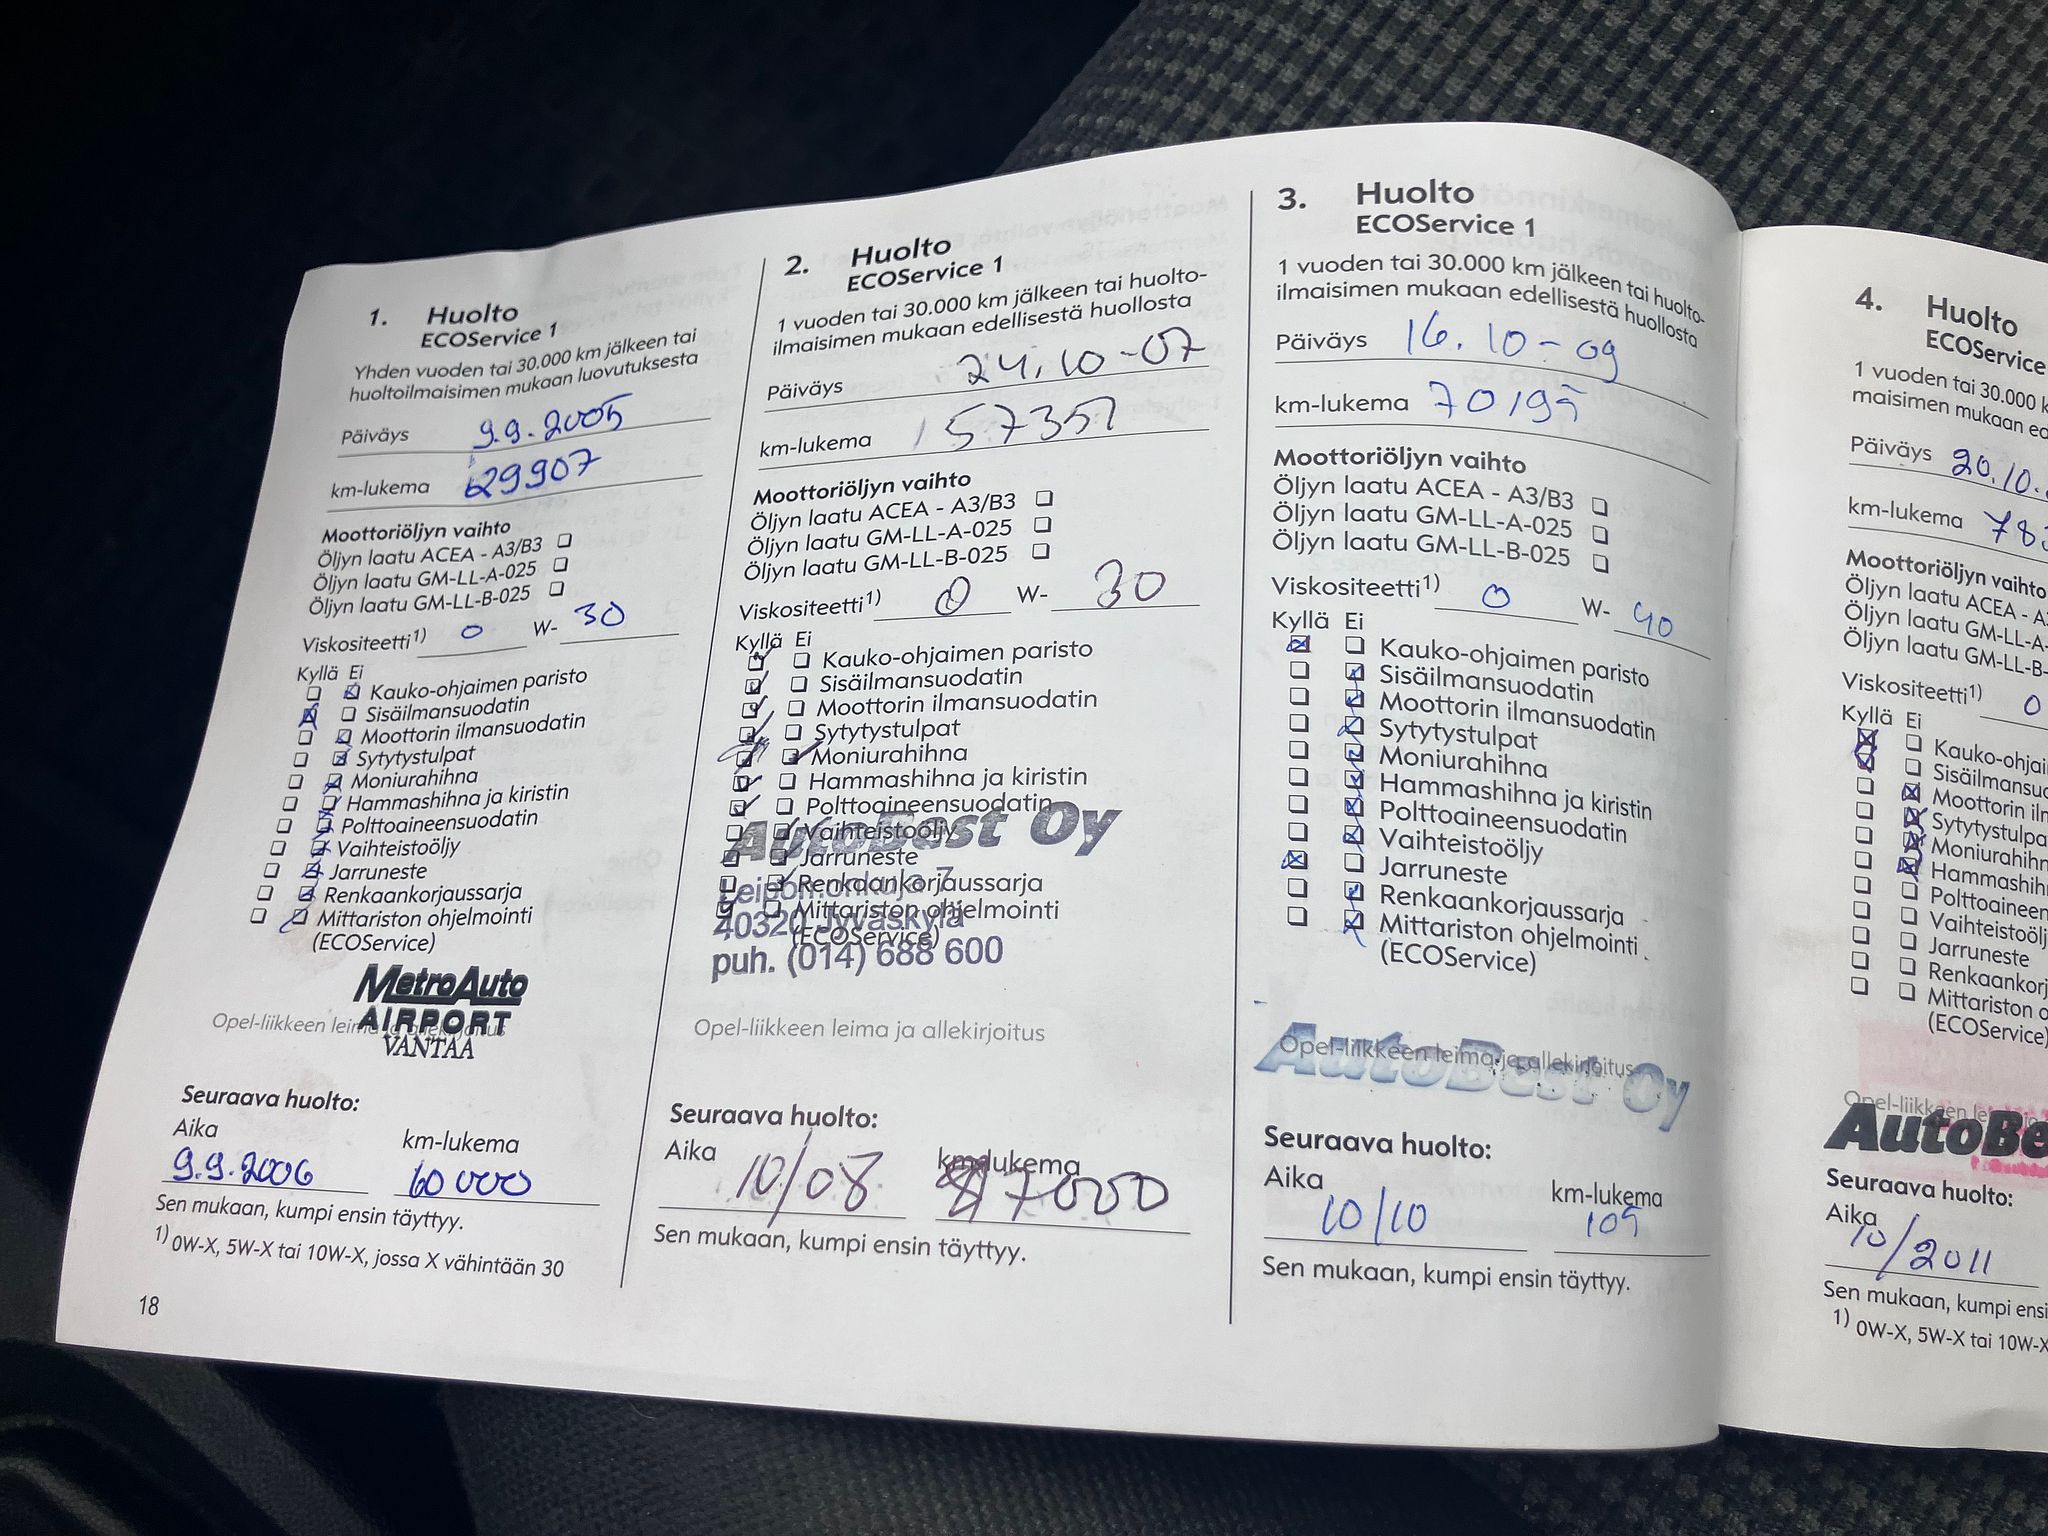 1. Huolto
ECOService 1
Yhden vuoden tai 30.000 km jälkeen tai
huoltoilmaisimen mukaan luovutuksesta
Päiväys 9.9.2005
km-lukema 29907
Moottoriöljyn vaihto
Öljyn laatu ACEA - A3/B3
Öljyn laatu GM-LL-A-025
Öljyn laatu GM-LL-B-025
Viskositeetti1) 0 W- 30
Kyllä Ei
Kauko-ohjaimen paristo
Sisäilmansuodatin
Moottorin ilmansuodatin
Sytytystulpat
Moniurahihna
Hammashihna ja kiristin
Polttoaineensuodatin
Vaihteistoöljy
Jarruneste
Renkaankorjaussarja
Mittariston ohjelmointi
(ECOService)
MetroAuto
AIRPORT
VANTAA
Opel-liikkeen leima ja allekirjoitus
Seuraava huolto:
Aika km-lukema
9.9.2006 60 000
Sen mukaan, kumpi ensin täyttyy.
1) 0W-X, 5W-X tai 10W-X, jossa X vähintään 30
18
2. Huolto
ECOService 1
1 vuoden tai 30.000 km jälkeen tai huolto-
ilmaisimen mukaan edellisestä huollosta
Päiväys 24.10-07
km-lukema 57351
Moottoriöljyn vaihto
Öljyn laatu ACEA - A3/B3
Öljyn laatu GM-LL-A-025
Öljyn laatu GM-LL-B-025
Viskositeetti1) 0 W- 30
Kyllä Ei
Kauko-ohjaimen paristo
Sisäilmansuodatin
Moottorin ilmansuodatin
Sytytystulpat
Moniurahihna
Hammashihna ja kiristin
Polttoaineensuodatin
Vaihteistoöljy
Jarruneste
Renkaankorjaussarja
Mittariston ohjelmointi
(ECOService)
AutoBest Oy
7
40320 Jyväskylä
puh. (014) 688 600
Opel-liikkeen leima ja allekirjoitus
Seuraava huolto:
Aika km-lukema
10/08 87000
Sen mukaan, kumpi ensin täyttyy.
3. Huolto
ECOService 1
1 vuoden tai 30.000 km jälkeen tai huolto-
ilmaisimen mukaan edellisestä huollosta
Päiväys 16.10-09
km-lukema 70195
Moottoriöljyn vaihto
Öljyn laatu ACEA - A3/B3
Öljyn laatu GM-LL-A-025
Öljyn laatu GM-LL-B-025
Viskositeetti1) 0 W- 40
Kyllä Ei
Kauko-ohjaimen paristo
Sisäilmansuodatin
Moottorin ilmansuodatin
Sytytystulpat
Moniurahihna
Hammashihna ja kiristin
Polttoaineensuodatin
Vaihteistoöljy
Jarruneste
Renkaankorjaussarja
Mittariston ohjelmointi
(ECOService)
Opel-liikkeen leima ja allekirjoitus
AutoBest Oy
Seuraava huolto:
Aika km-lukema
10/10 105
Sen mukaan, kumpi ensin täyttyy.
4. Huolto
ECOService
1 vuoden tai 30.000 k
maisimen mukaan ed
Päiväys 20.10.
km-lukema 783
Moottoriöljyn vaihto
Öljyn laatu ACEA - A
Öljyn laatu GM-LL-A-
Öljyn laatu GM-LL-B-
Viskositeetti1) 0
Kyllä Ei
Kauko-ohjai
Sisäilmansu
Moottorin iln
Sytytystulpa
Moniurahihn
Hammashihn
Polttoaineen
Vaihteistoölj
Jarruneste
Renkaankorj
Mittariston o
(ECOService)
Opel-liikkeen le
AutoBe
Seuraava huolto:
Aika
10/2011
Sen mukaan, kumpi ensi
1) 0W-X, 5W-X tai 10W-X